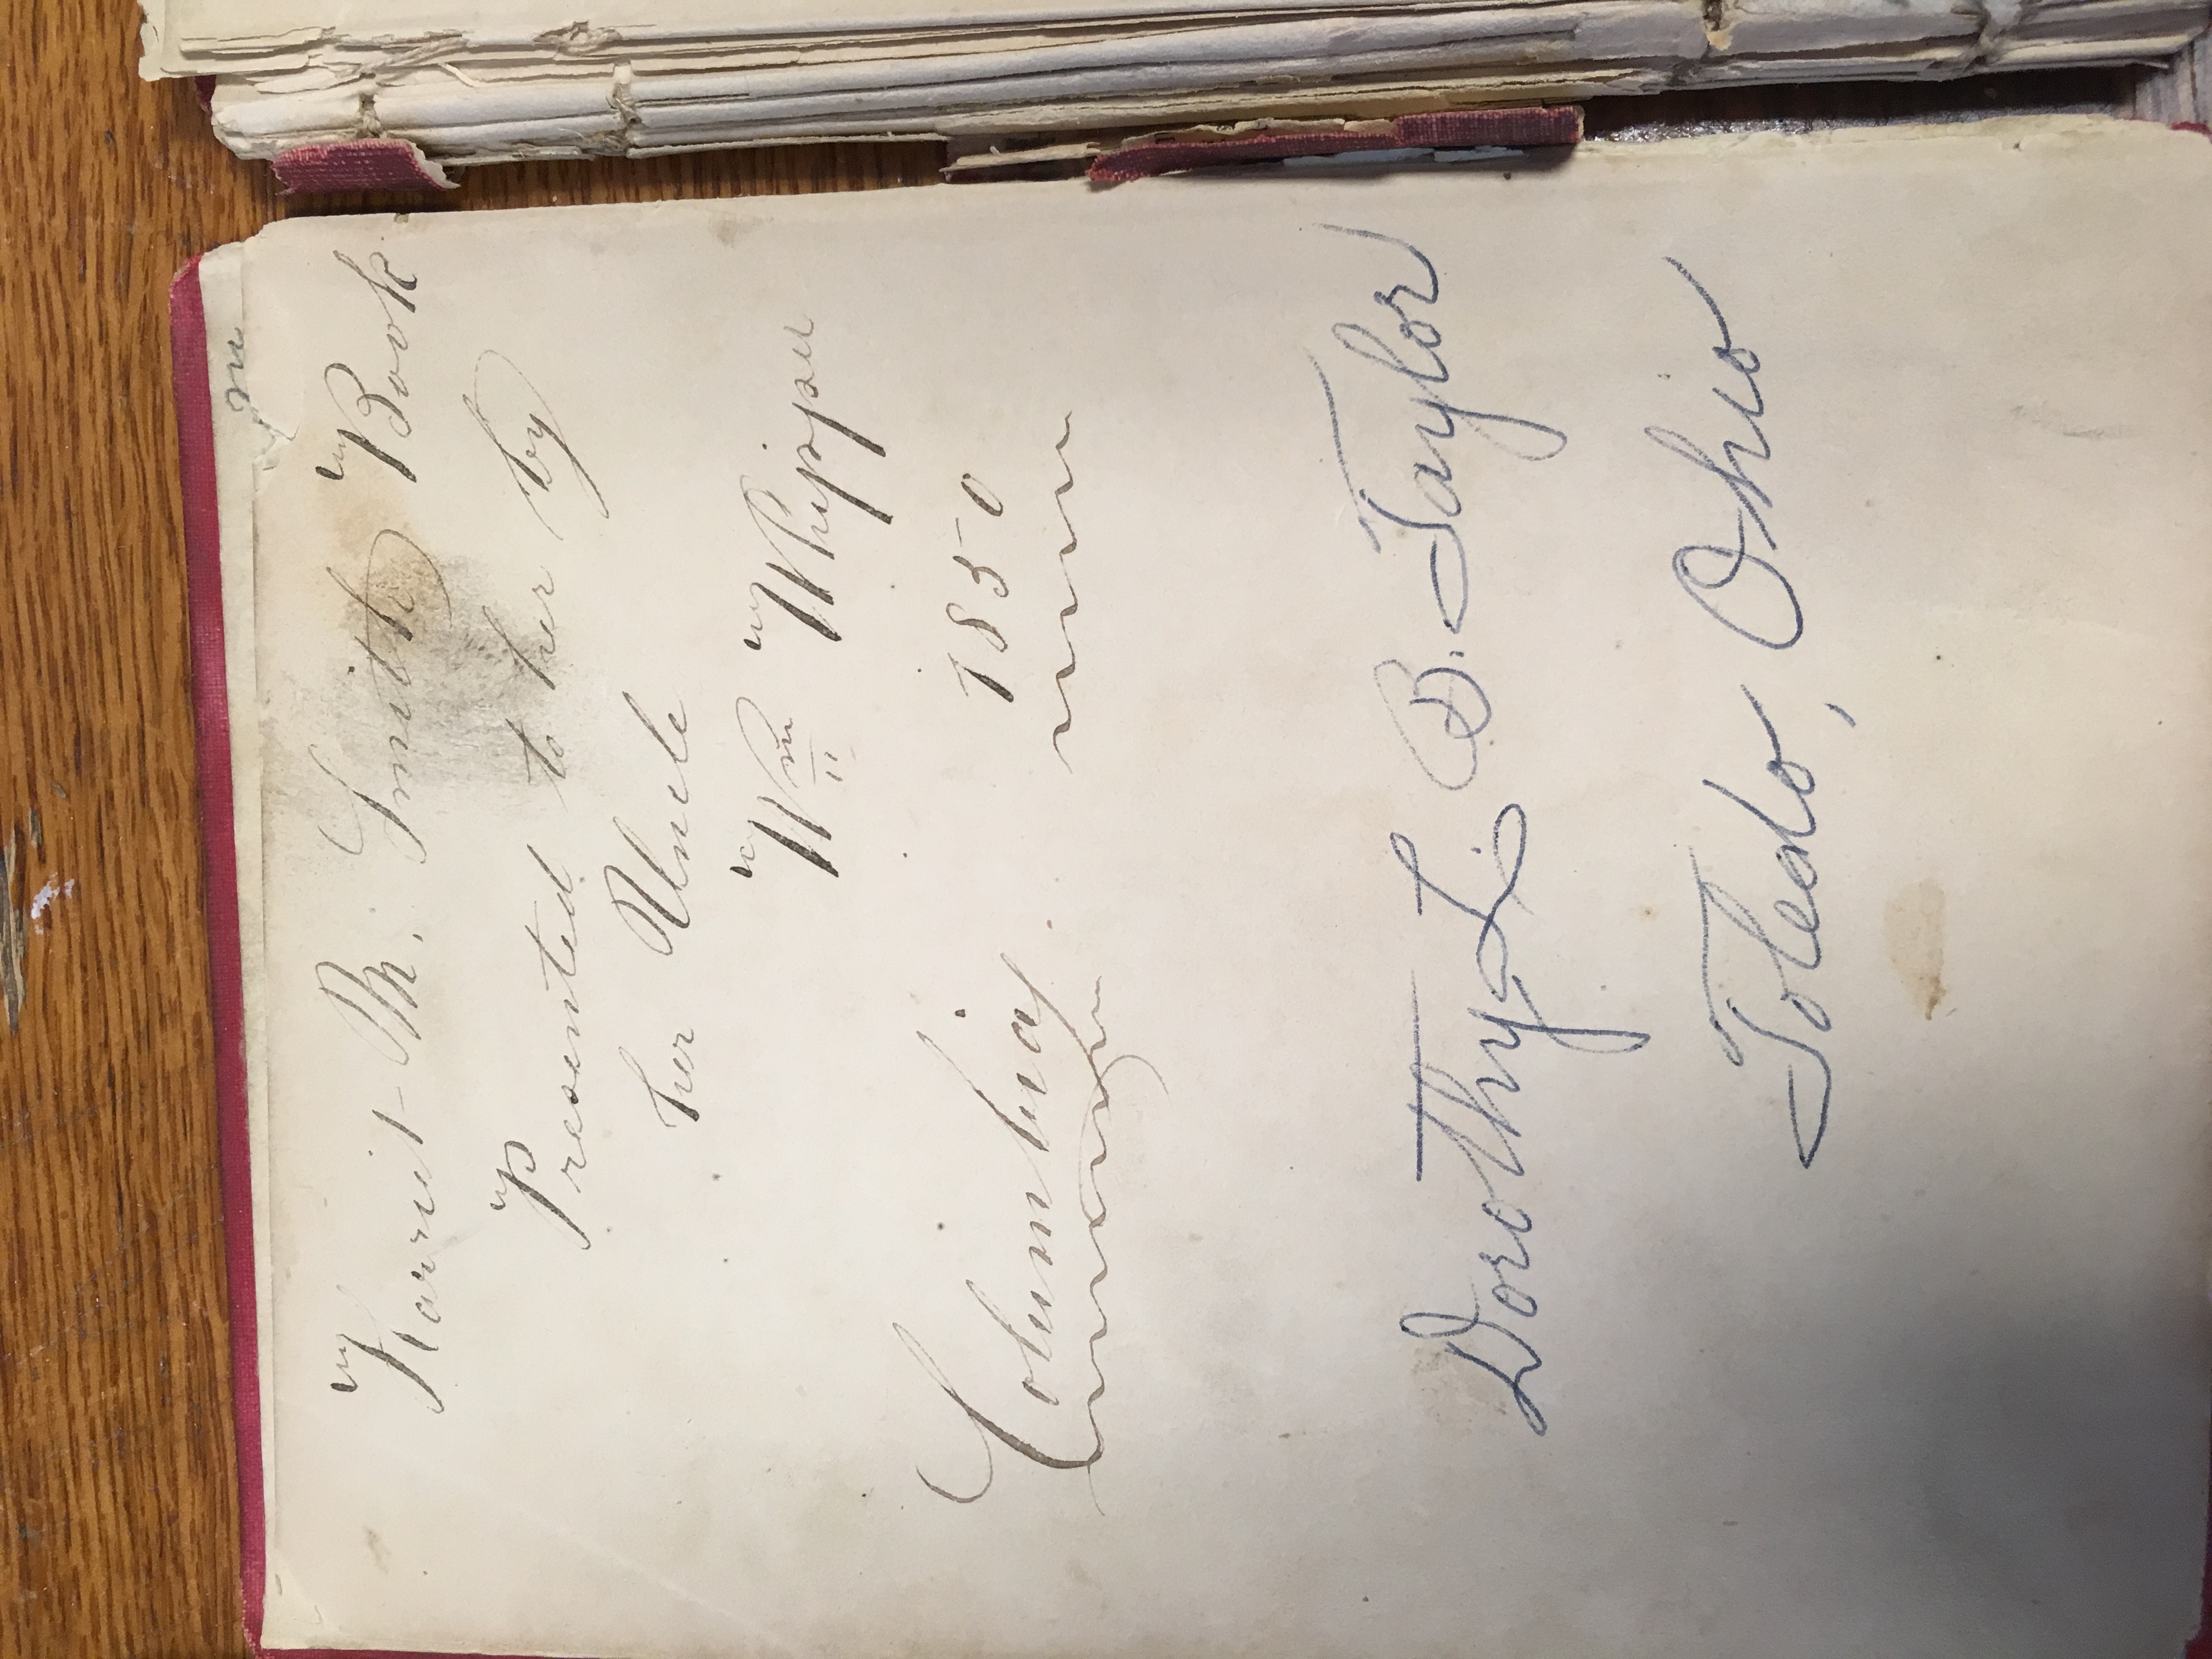 Harriet M. Smith Book
Presented to her by
her Uncle
Wm Whipper
Columbia 1850
Dorothy L. B. Taylor
Toledo, Ohio